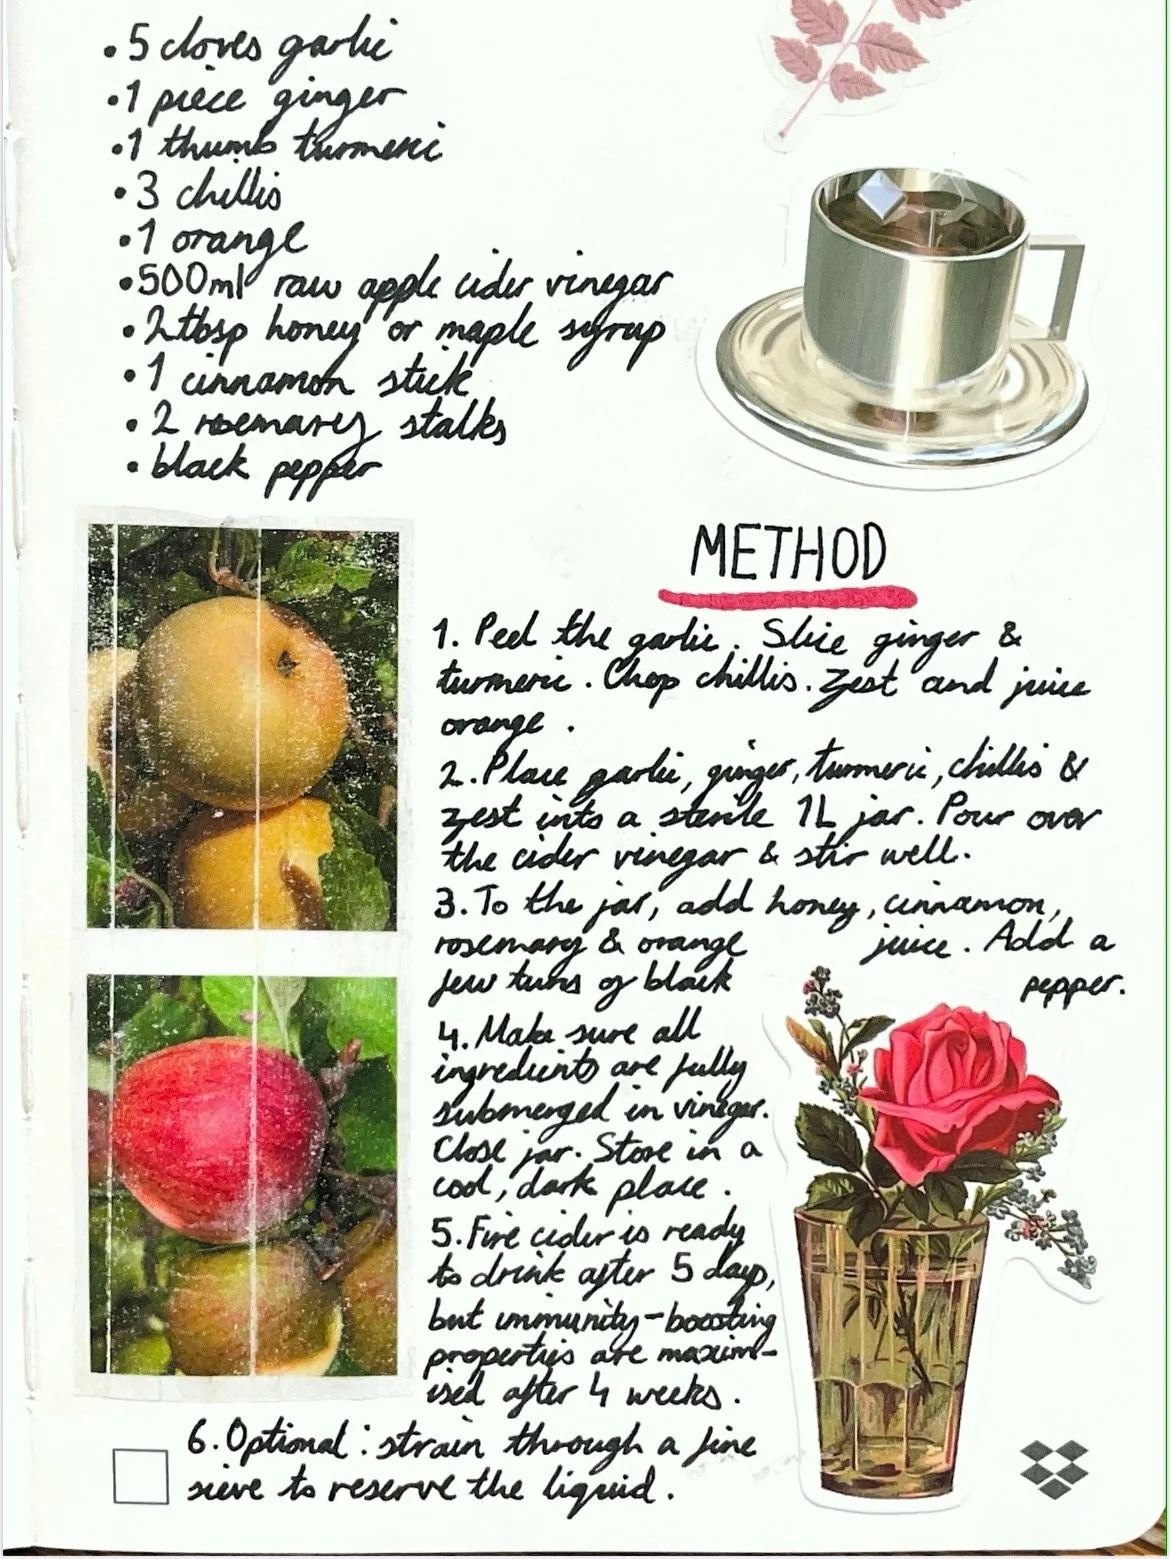 • 5 cloves garlic
• 1 piece ginger
• 1 thumb turmeric
• 3 chillis
• 1 orange
• 500ml raw apple cider vinegar
• 2 tbsp honey or maple syrup
• 1 cinnamon stick
• 2 rosemary stalks
• black pepper
METHOD
1. Peel the garlic. Slice ginger &
turmeric. Chop chillis. Zest and juice
orange.
2. Place garlic, ginger, turmeric, chillis &
zest into a sterile 1L jar. Pour over
the cider vinegar & stir well.
3. To the jar, add honey, cinnamon,
rosemary & orange juice. Add a
few turns of black pepper.
4. Make sure all
ingredients are fully
submerged in vinegar.
Close jar. Store in a
cool, dark place.
5. Fire cider is ready
to drink after 5 days,
but immunity-boosting
properties are maxim-
ised after 4 weeks.
6. Optional: strain through a fine
sieve to reserve the liquid.